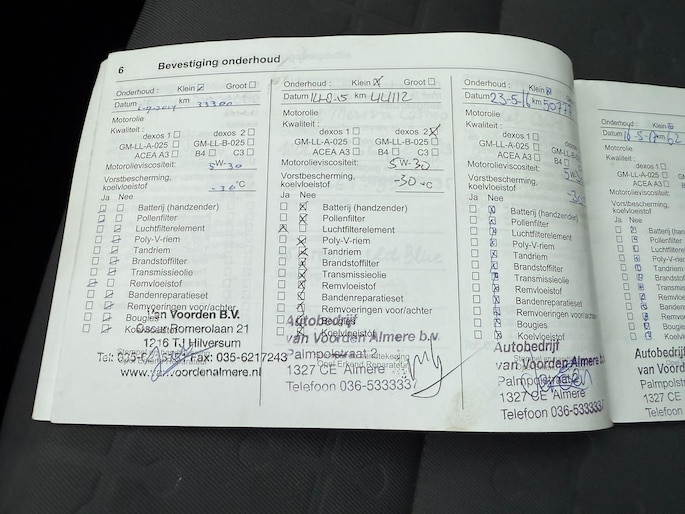 6 Bevestiging onderhoud
Onderhoud : Klein Groot
Datum km 33300
Motorolie
Kwaliteit :
dexos 1 dexos 2
GM-LL-A-025 GM-LL-B-025
ACEA A3 B4 C3
Motorolieviscositeit: 5W-30
Vorstbescherming,
koelvloeistof -30 °C
Ja Nee
Batterij (handzender)
Pollenfilter
Luchtfilterelement
Poly-V-riem
Tandriem
Brandstoffilter
Transmissieolie
Remvloeistof
Bandenreparatieset
Remvoeringen voor/achter
Bougies
Koelvloeistof
Van Voorden B.V.
Oscar Romerolaan 21
1216 TJ Hilversum
Fax: 035-6217243
www.vanvoordenalmere.nl
Onderhoud : Klein Groot
Datum km 44112
Motorolie
Kwaliteit :
dexos 1 dexos 2
GM-LL-A-025 GM-LL-B-025
ACEA A3 B4 C3
Motorolieviscositeit: 5W-30
Vorstbescherming,
koelvloeistof -30 °C
Ja Nee
Batterij (handzender)
Pollenfilter
Luchtfilterelement
Poly-V-riem
Tandriem
Brandstoffilter
Transmissieolie
Remvloeistof
Bandenreparatieset
Remvoeringen voor/achter
Bougies
Koelvloeistof
Autobedrijf
van Voorden Almere b.v.
Palmpolstraat 2
1327 CE Almere
Telefoon 036-5333337
Onderhoud : Klein
Datum 23-5-16 km
Motorolie
Kwaliteit :
dexos 1
GM-LL-A-025
ACEA A3
Motorolieviscositeit:
Vorstbescherming,
koelvloeistof
Ja Nee
Batterij (handzender)
Pollenfilter
Luchtfilterelement
Poly-V-riem
Tandriem
Brandstoffilter
Transmissieolie
Remvloeistof
Bandenreparatieset
Remvoeringen voor/achter
Bougies
Koelvloeistof
Autobedrijf
van Voorden Almere b.v.
Palmpolstraat 2
1327 CE Almere
Telefoon 036-5333337
Onderhoud : Klein
Datum 16-5-17 km 62
Motorolie
Kwaliteit :
dexos 1
GM-LL-A-025
ACEA A3
Motorolieviscositeit:
Vorstbescherming,
koelvloeistof
Ja Nee
Batterij (handzender)
Pollenfilter
Luchtfilterelement
Poly-V-riem
Tandriem
Brandstoffilter
Transmissieolie
Remvloeistof
Bandenreparatieset
Remvoeringen
Bougies
Koelvloeistof
Autobedrijf
van Voorden
Palmpolst
1327 CE A
Telefoon